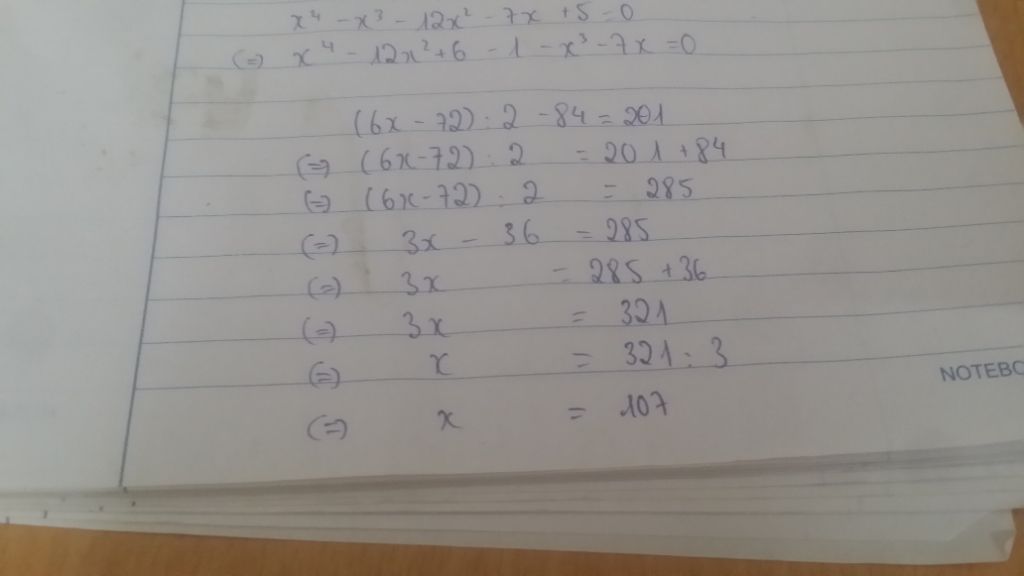 x⁴ - x³ - 12x² - 7x + 5 = 0
(=) x⁴ - 12x² + 6 - 1 - x³ - 7x = 0
(6x - 72) : 2 - 84 = 201
(=) (6x - 72) : 2 = 201 + 84
(=) (6x - 72) : 2 = 285
(=) 3x - 36 = 285
(=) 3x = 285 + 36
(=) 3x = 321
(=) x = 321 : 3
(=) x = 107